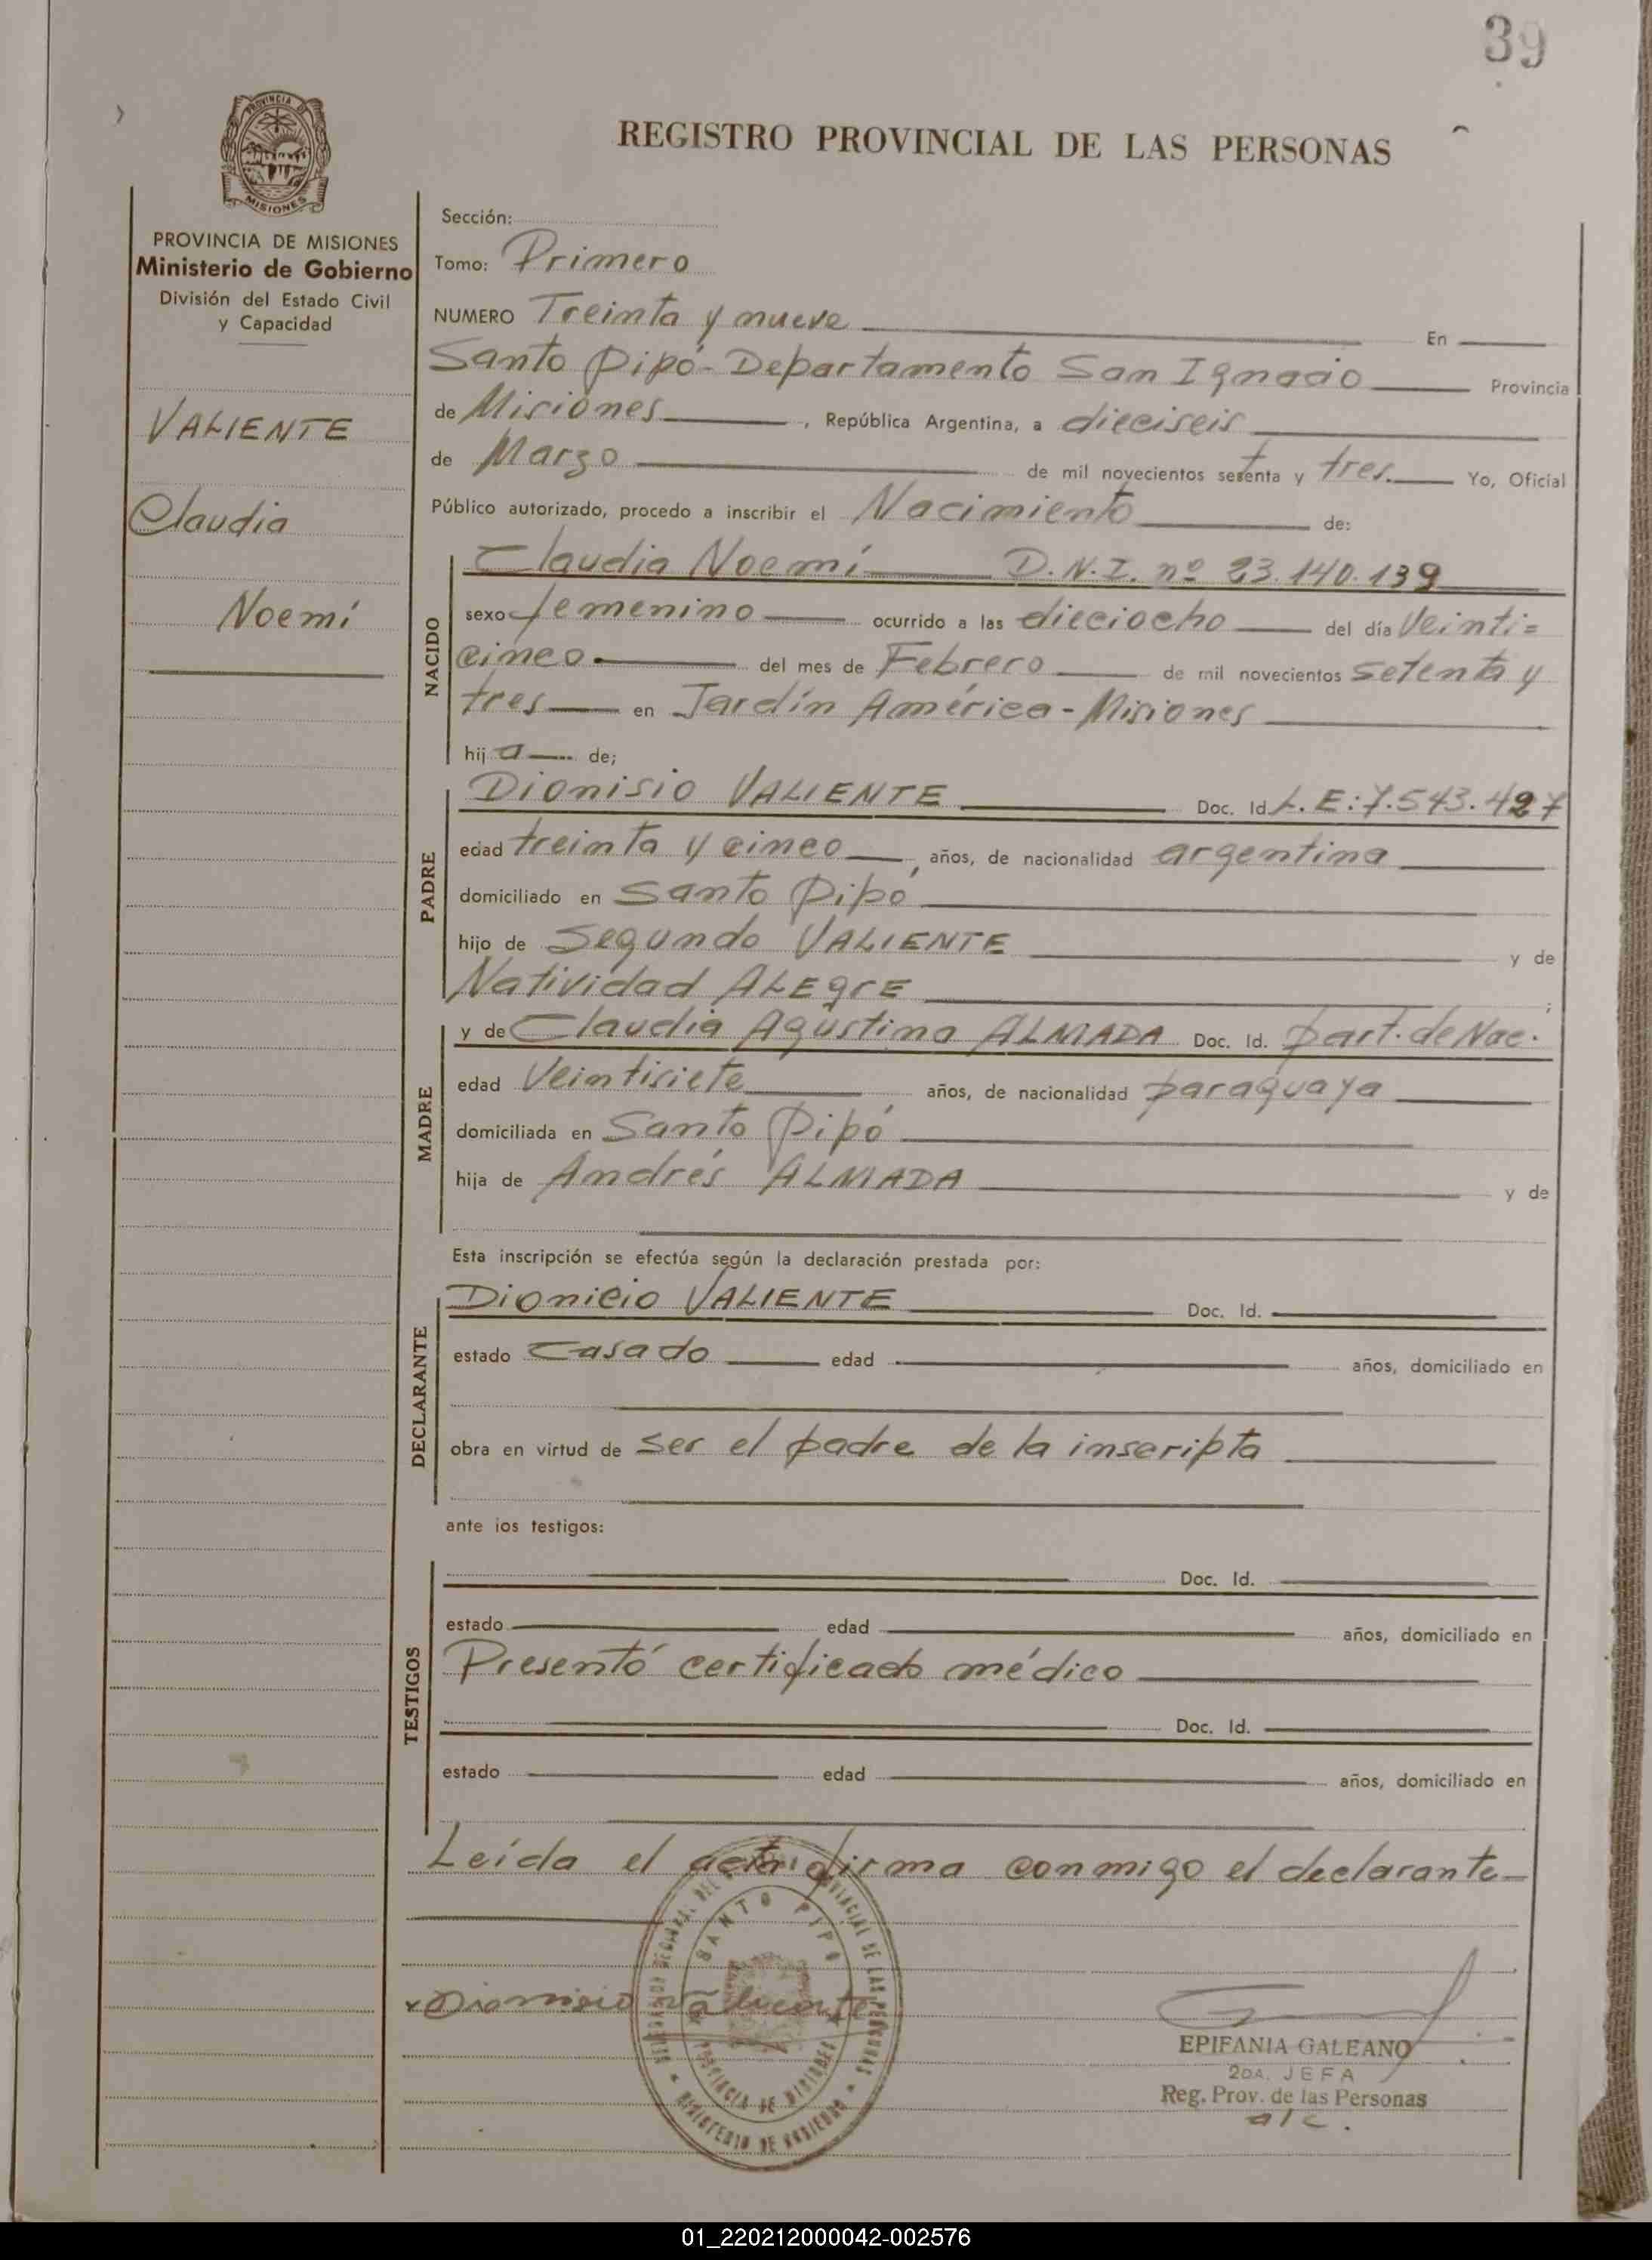 39
PROVINCIA DE
MISIONES
REGISTRO PROVINCIAL DE LAS PERSONAS
PROVINCIA DE MISIONES
Ministerio de Gobierno
División del Estado Civil
y Capacidad
VALIENTE
Claudia
Noemí
Sección:
Tomo: Primero
NUMERO Treinta y nueve En
Santo Pipó - Departamento San Ignacio Provincia
de Misiones, República Argentina, a dieciseis
de Marzo de mil novecientos setenta y tres. Yo, Oficial
Público autorizado, procedo a inscribir el Nacimiento de:
NACIDO
Claudia Noemí D.N.I. nº 23.140.139
sexo femenino ocurrido a las dieciocho del día Veinti=
cinco del mes de Febrero de mil novecientos setenta y
tres en Jardín América - Misiones
hij a de;
PADRE
Dionisio VALIENTE Doc. Id. L.E: 7.543.427
edad treinta y cinco, años, de nacionalidad argentina
domiciliado en Santo Pipó
hijo de Segundo VALIENTE y de
Natividad ALEgrE ;
MADRE
y de Claudia Agustina ALMADA Doc. Id. part. de Nac.
edad Veintisiete años, de nacionalidad paraguaya
domiciliada en Santo Pipó
hija de Andrés ALMADA y de
Esta inscripción se efectúa según la declaración prestada por:
DECLARANTE
Dionicio VALIENTE Doc. Id.
estado Casado edad años, domiciliado en
obra en virtud de ser el padre de la inscripta
ante los testigos:
TESTIGOS
Doc. Id.
estado edad años, domiciliado en
Presentó certificado médico
Doc. Id.
estado edad años, domiciliado en
Leída el acta firma conmigo el declarante
x Dionisio Valiente
SANTO PIPO
PROVINCIAL DE LAS PERSONAS
PROVINCIA DE MISIONES
MINISTERIO DE GOBIERNO
EPIFANIA GALEANO
2DA. JEFA
Reg. Prov. de las Personas
a/c.
01_220212000042-002576